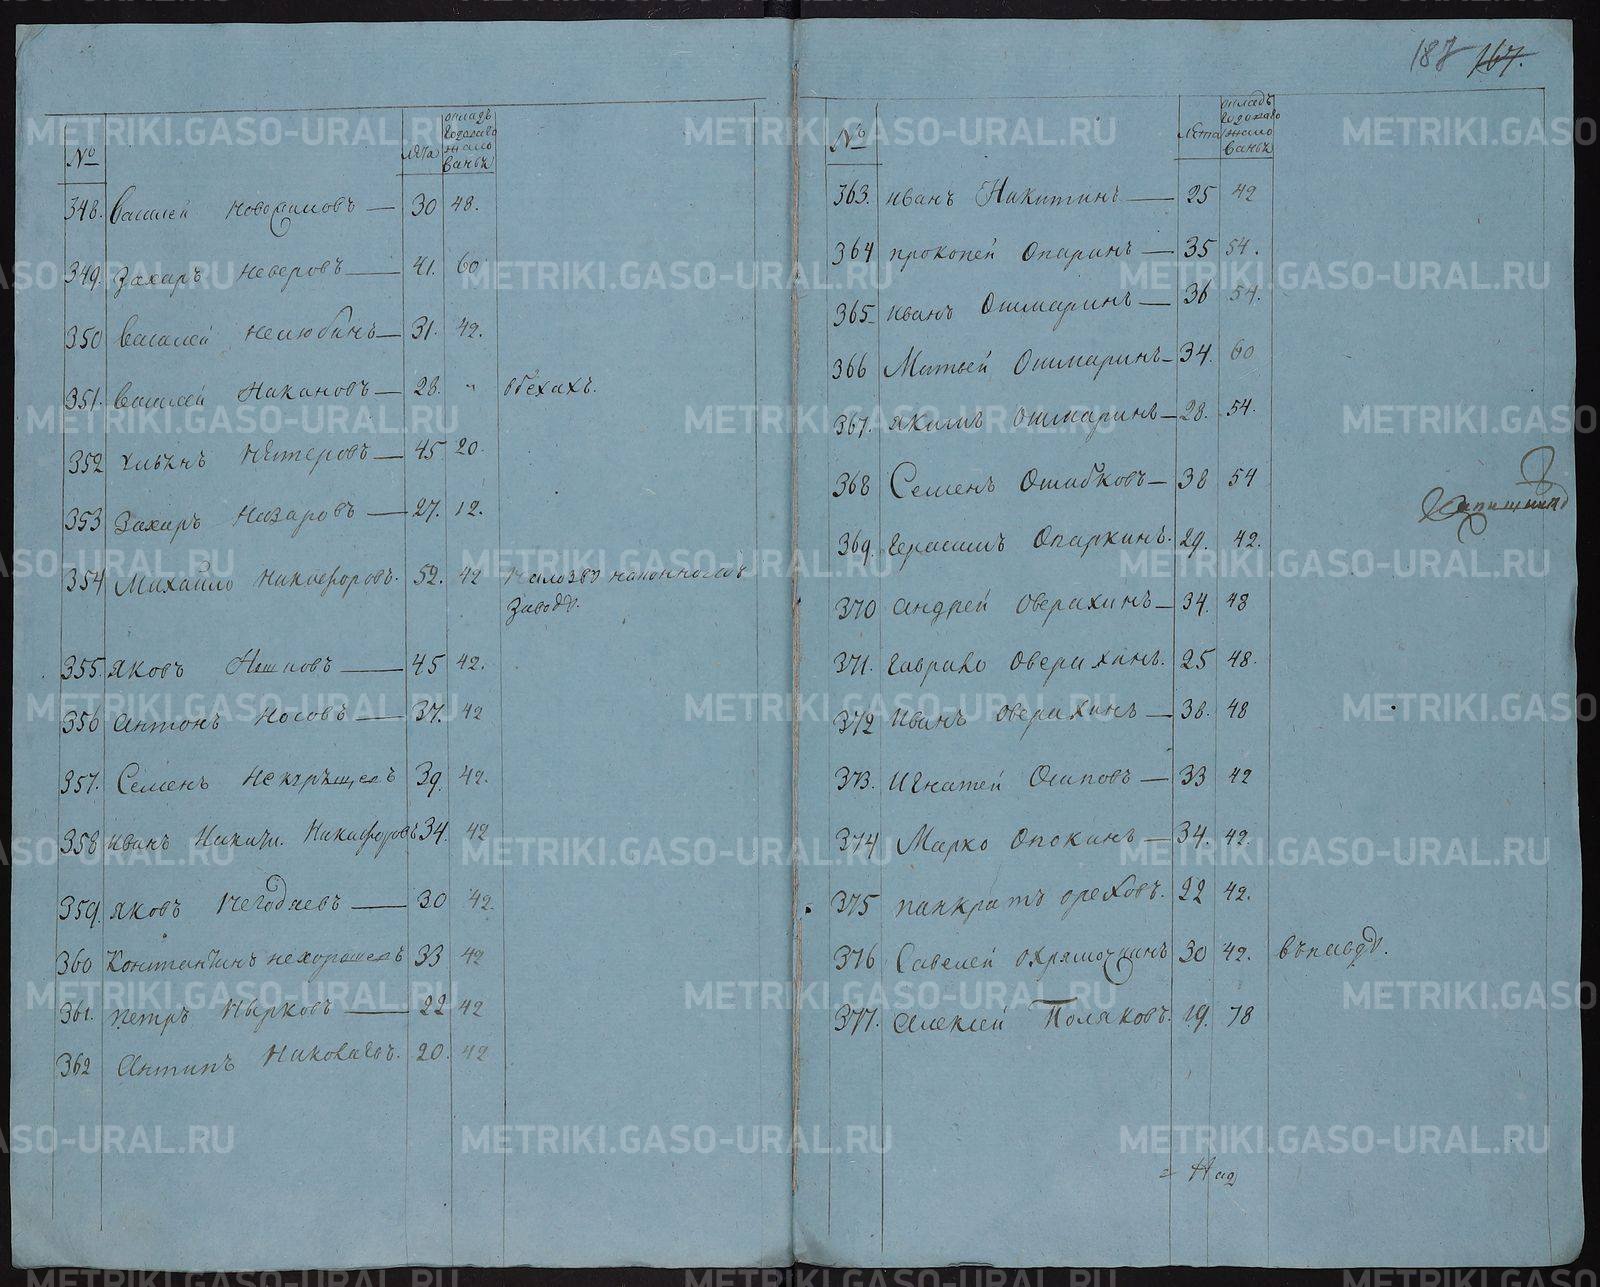 187 167.
№ лѣта окладъ годоваго жалованья
348. Василей Новоселовъ — 30 48.
349. Захаръ Неверовъ — 41. 60
350 Василей Нелюбинъ — 31. 42.
351. Василей — 28. „ вбѣхахъ.
352 Нѣтеровъ — 45 20.
353 Захаръ Назаровъ — 27. 12.
354 Михайло Никифоровъ. 52. 42
заводѣ.
355. Яковъ — 45 42.
356 Антонъ Носовъ — 37. 42
357. Семенъ 39. 42.
358 Иванъ Никифоровъ 34. 42
359. Яковъ Негодяевъ — 30 42.
360 Константинъ Нехорошевъ 33 42
361. Петръ Нырковъ — 22 42
362 Антипъ 20. 42
№ лѣта окладъ годоваго жалованья
363. Иванъ Никитинъ — 25 42
364 Прокопей Опаринъ — 35 54.
365 Иванъ Ошмаринъ — 36 54.
366 Матвей Ошмаринъ — 34. 60
367. Якимъ Ошмаринъ — 28. 54.
368 Семенъ Ошибковъ — 38 54
369. Герасимъ Опаркинъ. 29. 42.
370 Андрей Оверихинъ — 34. 48
371. Гаврило Оверихинъ. 25 48.
372 Иванъ Оверихинъ — 38. 48
373. Игнатей Осиповъ — 33 42
374 Марко Опокинъ — 34. 42.
375 Панкратъ Ореховъ. 22 42.
376 Савелей Охрямочкинъ 30 42.
377. Алексей Поляковъ. 19. 78
METRIKI.GASO-URAL.RU